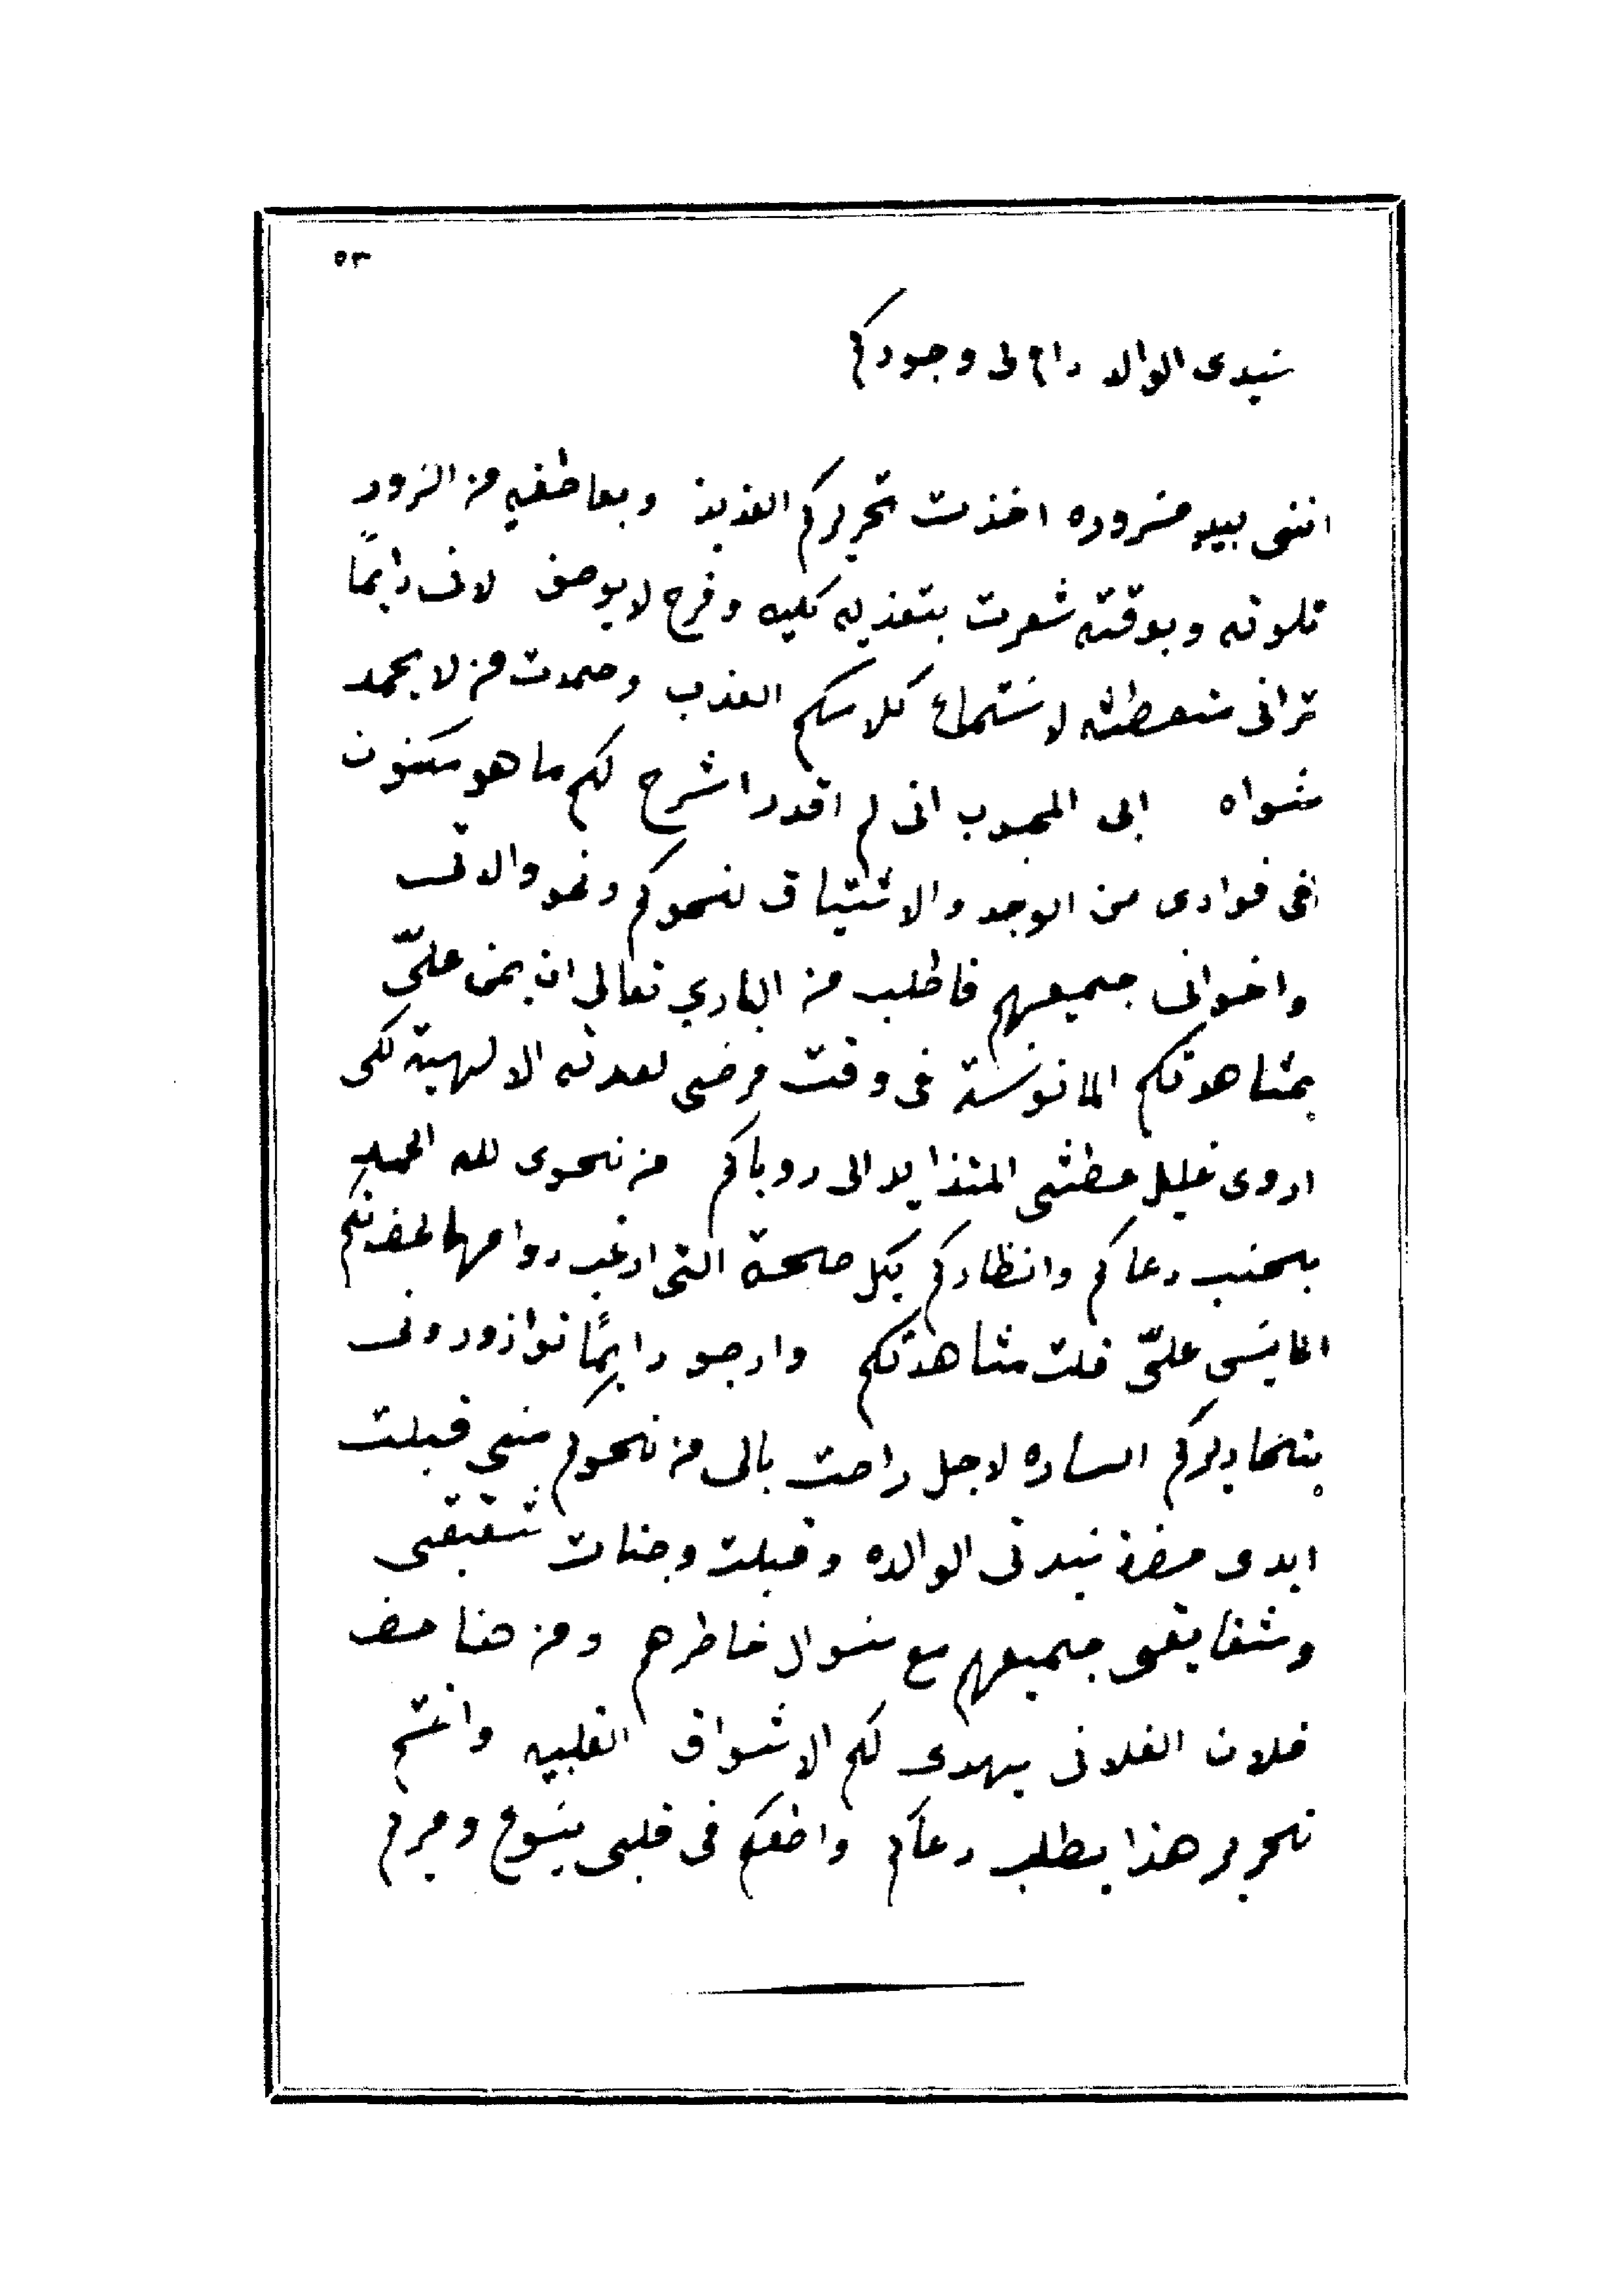 ٥٣
سيدى الوالد دام لى وجودكم
اننى بيد مسروره اخذت تحريركم العذيذ وبعاطفيه من السرور
تلوته وبوقته شعرت بتعذيه كليه وفرح لا يوصف لانى دايمًا
ترانى متعطش لاستماع كلامكم العذب وحمدت من لا يحمد
سواه ابى المحبوب انى لم اقدر اشرح لكم ما هو مكنون
فى فوادى من الوجد والاشتياق لنحوكم ونحو والدتى
واخوانى جميعهم فاطلب من البارى تعالى ان يمن علىّ
بمشاهدتكم المانوسة فى وقت مرضى لعدته الالهية لكى
اروى غليل عطشى المتزايد الى روياكم من نحوى لله الحمد
بحسب دعاكم وانظاركم بكل صحة التى ارغب دوامها لحضرتكم
القاسى علىّ قلت مشاهدتكم وارجو دايمًا توازرونى
بتحاريركم الساره لاجل راحت بالى من نحوكم منى قبلت
ايدى حضرة سيدتى الوالده وقبلت وجنات شقيقتى
وشقايقى جميعهم مع سوال خاطرهم ومن هنا حضر
فلان الفلانى يهدى لكم الاشواق القلبيه واختم
تحرير هذا بطلب دعاكم واضعكم فى قلبى يسوع ومريم